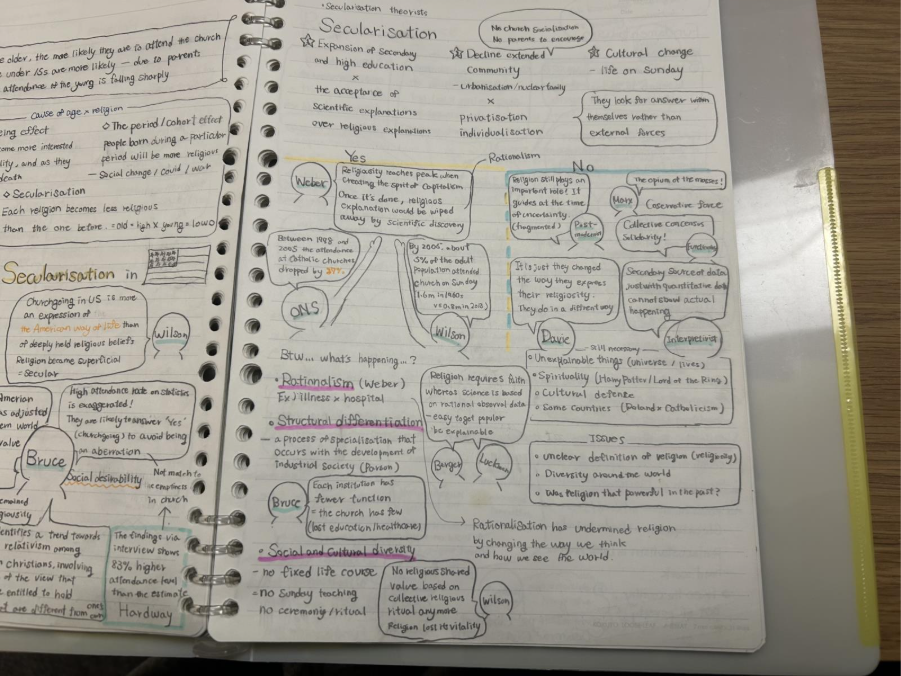 e older, the more likely they are to attend the church
under 15s are more likely — due to parents
attendance of the young is falling sharply
cause of age x religion
ing effect
ome more interested
ity, and as they
death
◇ The period / cohort effect
people born during a particular
period will be more religious
- Social change / could / war
◇ Secularisation
Each religion becomes less religious
than the one before.
Secularisation in
Churchgoing in US is more
an expression of
the American way of life than
of deeply held religious beliefs
Religion became superficial
= Secular
Wilson
American
as adjusted
ern world
value
High attendance rate on statistics
is exaggerated!
They are likely to answer "Yes"
(churchgoing) to avoid being
an aberration
Bruce
Social desirability
Not match to
emptiness
in church
remained
igiousity
entifies a trend towards
relativism among
christians, involving
of the view that
e entitled to hold
ed are different from one's
own
The findings via
interview shows
83% higher
attendance level
than the estimate
Hardway
• Secularisation theorists
Secularisation
No church Socialisation
No parents to encourage
☆ Expansion of Secondary
and high education
x
the acceptance of
scientific explanations
over religious explanations
☆ Decline extended
Community
- urbanisation/nuclear family
x
privatisation
individualisation
☆ Cultural change
- life on Sunday
They look for answer within
themselves rather than
external forces
Yes
Rationalism
No
Weber
Religiosity reaches peak when
creating the spirit of capitalism
Once it's done, religious
explanation would be wiped
away by scientific discovery
Between 1998 and
2005 the attendance
at Catholic churches
dropped by
ONS
By 2005, about
5% of the adult
Population attended
church on Sunday
1.6m in 1960s
Wilson
Religion still plays an
important role! It
guides at the time
of uncertainty.
(fragmented)
Post-
modern
The opium of the masses!
Marx
Conservative force
Collective conscious
Solidarity!
It is just they changed
the way they express
their religiosity.
They do in a different way
Davie
Secondary Source of data
just with quantitative data
cannot show actual
happening
Interpretivist
Btw... what's happening...?
• Rationalism (Weber)
Ex) illness x hospital
• Structural differentiation
- a process of specialisation that
occurs with the development of
Industrial Society (Parson)
Bruce
Each institution has
fewer function
= the church has few
(lost education/healthcare)
• Social and Cultural diversity
- no fixed life course
= no Sunday teaching
no ceremony/ritual
No religious shared
value based on
collective religious
ritual anymore
Religion lost its vitality
Wilson
Religion requires faith
whereas science is based
on rational observal data
- easy to get popular
be explainable
Burger
Luckman
still necessary
◦ Unexplainable things (universe / lives)
◦ Spirituality (Harry Potter / Lord of the Ring)
◦ Cultural defense
◦ Some Countries (Poland x Catholicism)
ISSUES
◦ unclear definition of religion (religiosity)
◦ Diversity around the world
◦ Was religion that powerful in the past?
Rationalisation has undermined religion
by changing the way we think
and how we see the world.